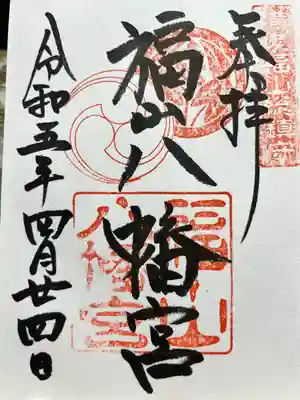 奉拝
福山八幡宮
令和五年四月廿四日
福山
八幡宮